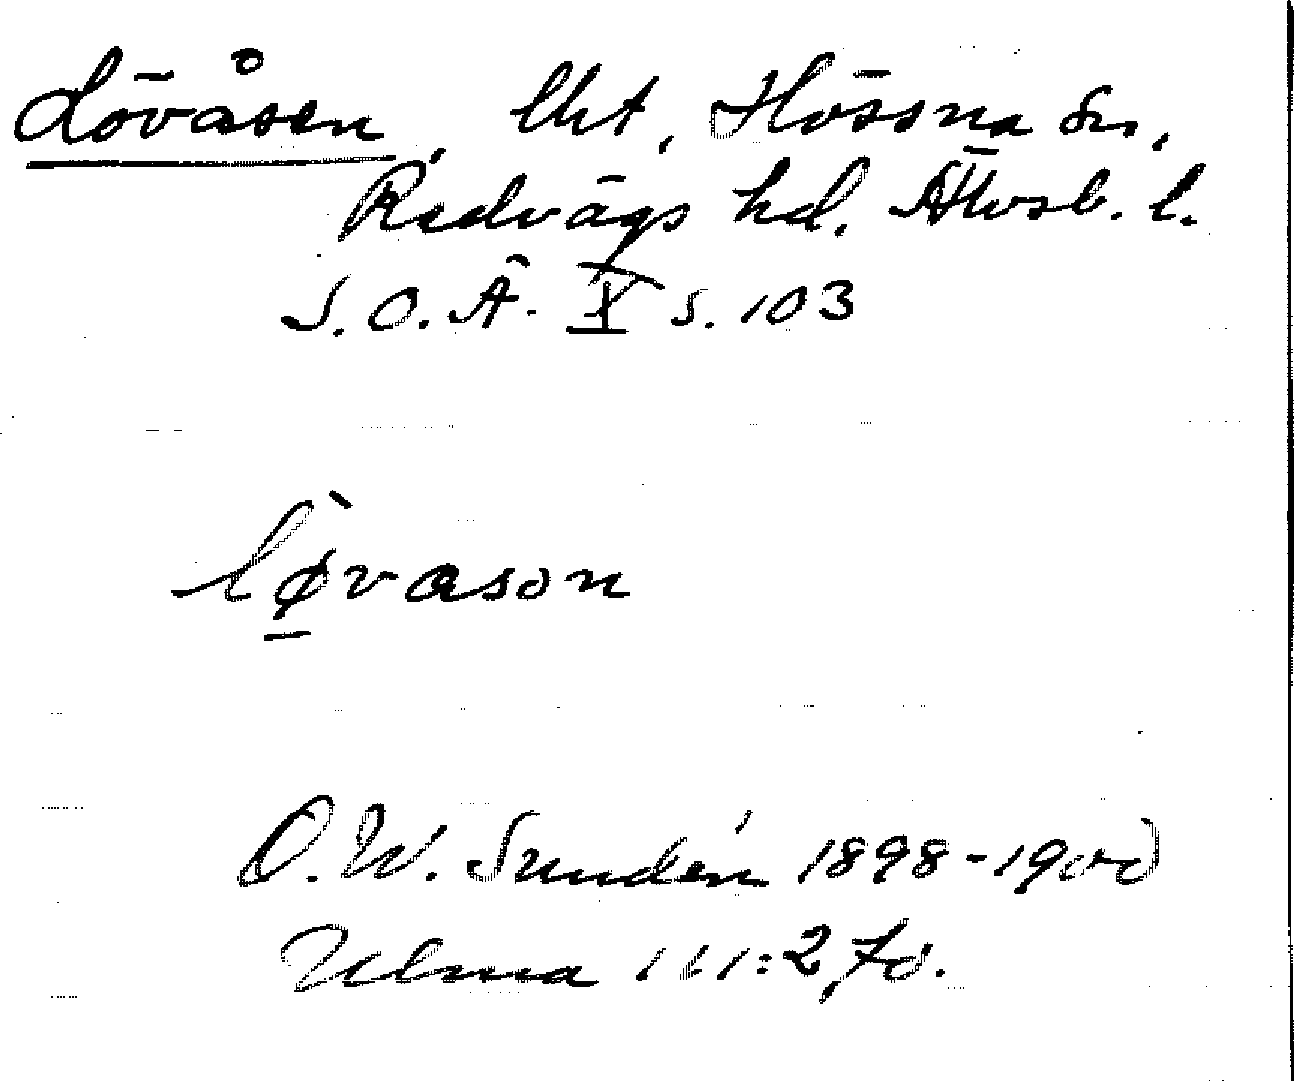 Lövåsen, lht, Hössna sn,
Redvägs hd. Älvsb. l.
S.O.Ä. X s. 103
lø̱̀vason
D.W. Sundén 1898-1900
Ulma 111:2, 70.